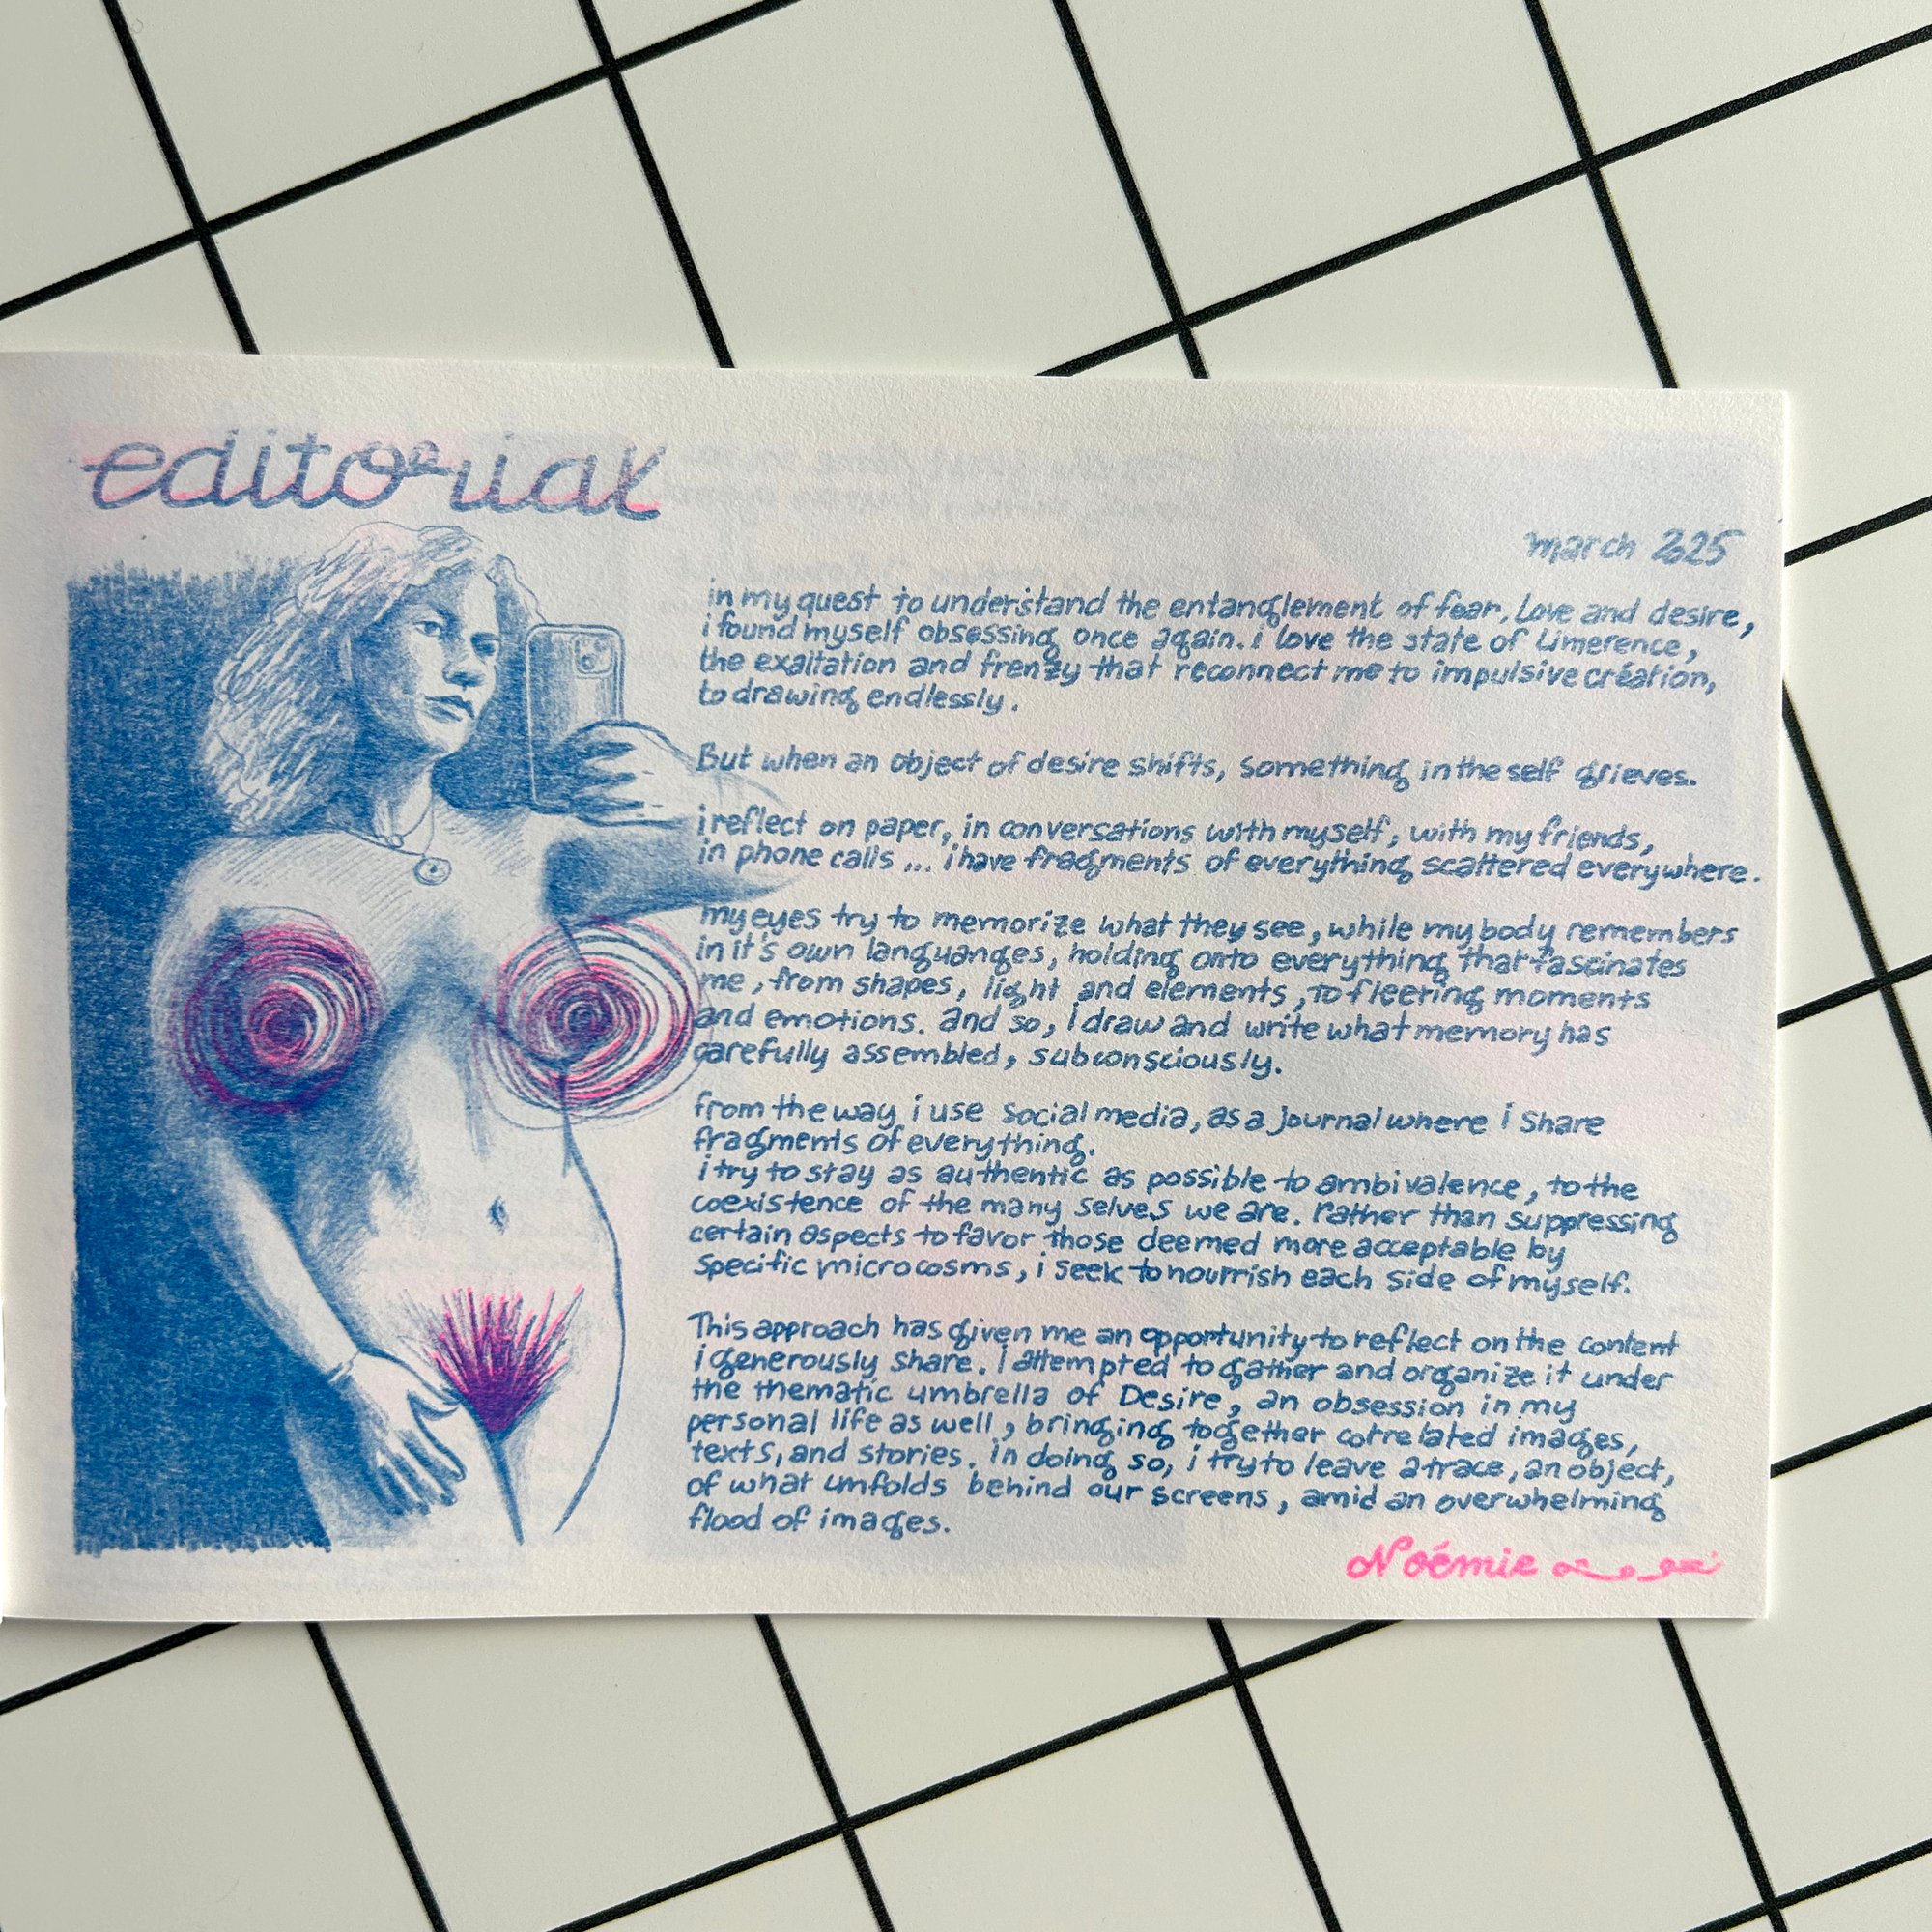 editorial
march 2025
in my quest to understand the entanglement of fear, love and desire,
i found myself obsessing once again. i love the state of limerence,
the exaltation and frenzy that reconnect me to impulsive création,
to drawing endlessly.
But when an object of desire shifts, something in the self grieves.
i reflect on paper, in conversations with myself, with my friends,
in phone calls ... i have fragments of everything scattered everywhere.
my eyes try to memorize what they see, while my body remembers
in it's own languanges, holding onto everything that fascinates
me, from shapes, light and elements, to fleeting moments
and emotions. and so, i draw and write what memory has
carefully assembled, subconsciously.
from the way i use social media, as a journal where i share
fragments of everything.
i try to stay as authentic as possible to ambivalence, to the
coexistence of the many selves we are. rather than suppressing
certain aspects to favor those deemed more acceptable by
specific microcosms, i seek to nourrish each side of myself.
This approach has given me an opportunity to reflect on the content
i generously share. i attempted to gather and organize it under
the thematic umbrella of Desire, an obsession in my
personal life as well, bringing together correlated images,
texts, and stories. in doing so, i try to leave a trace, an object,
of what unfolds behind our screens, amid an overwhelming
flood of images.
Noémie